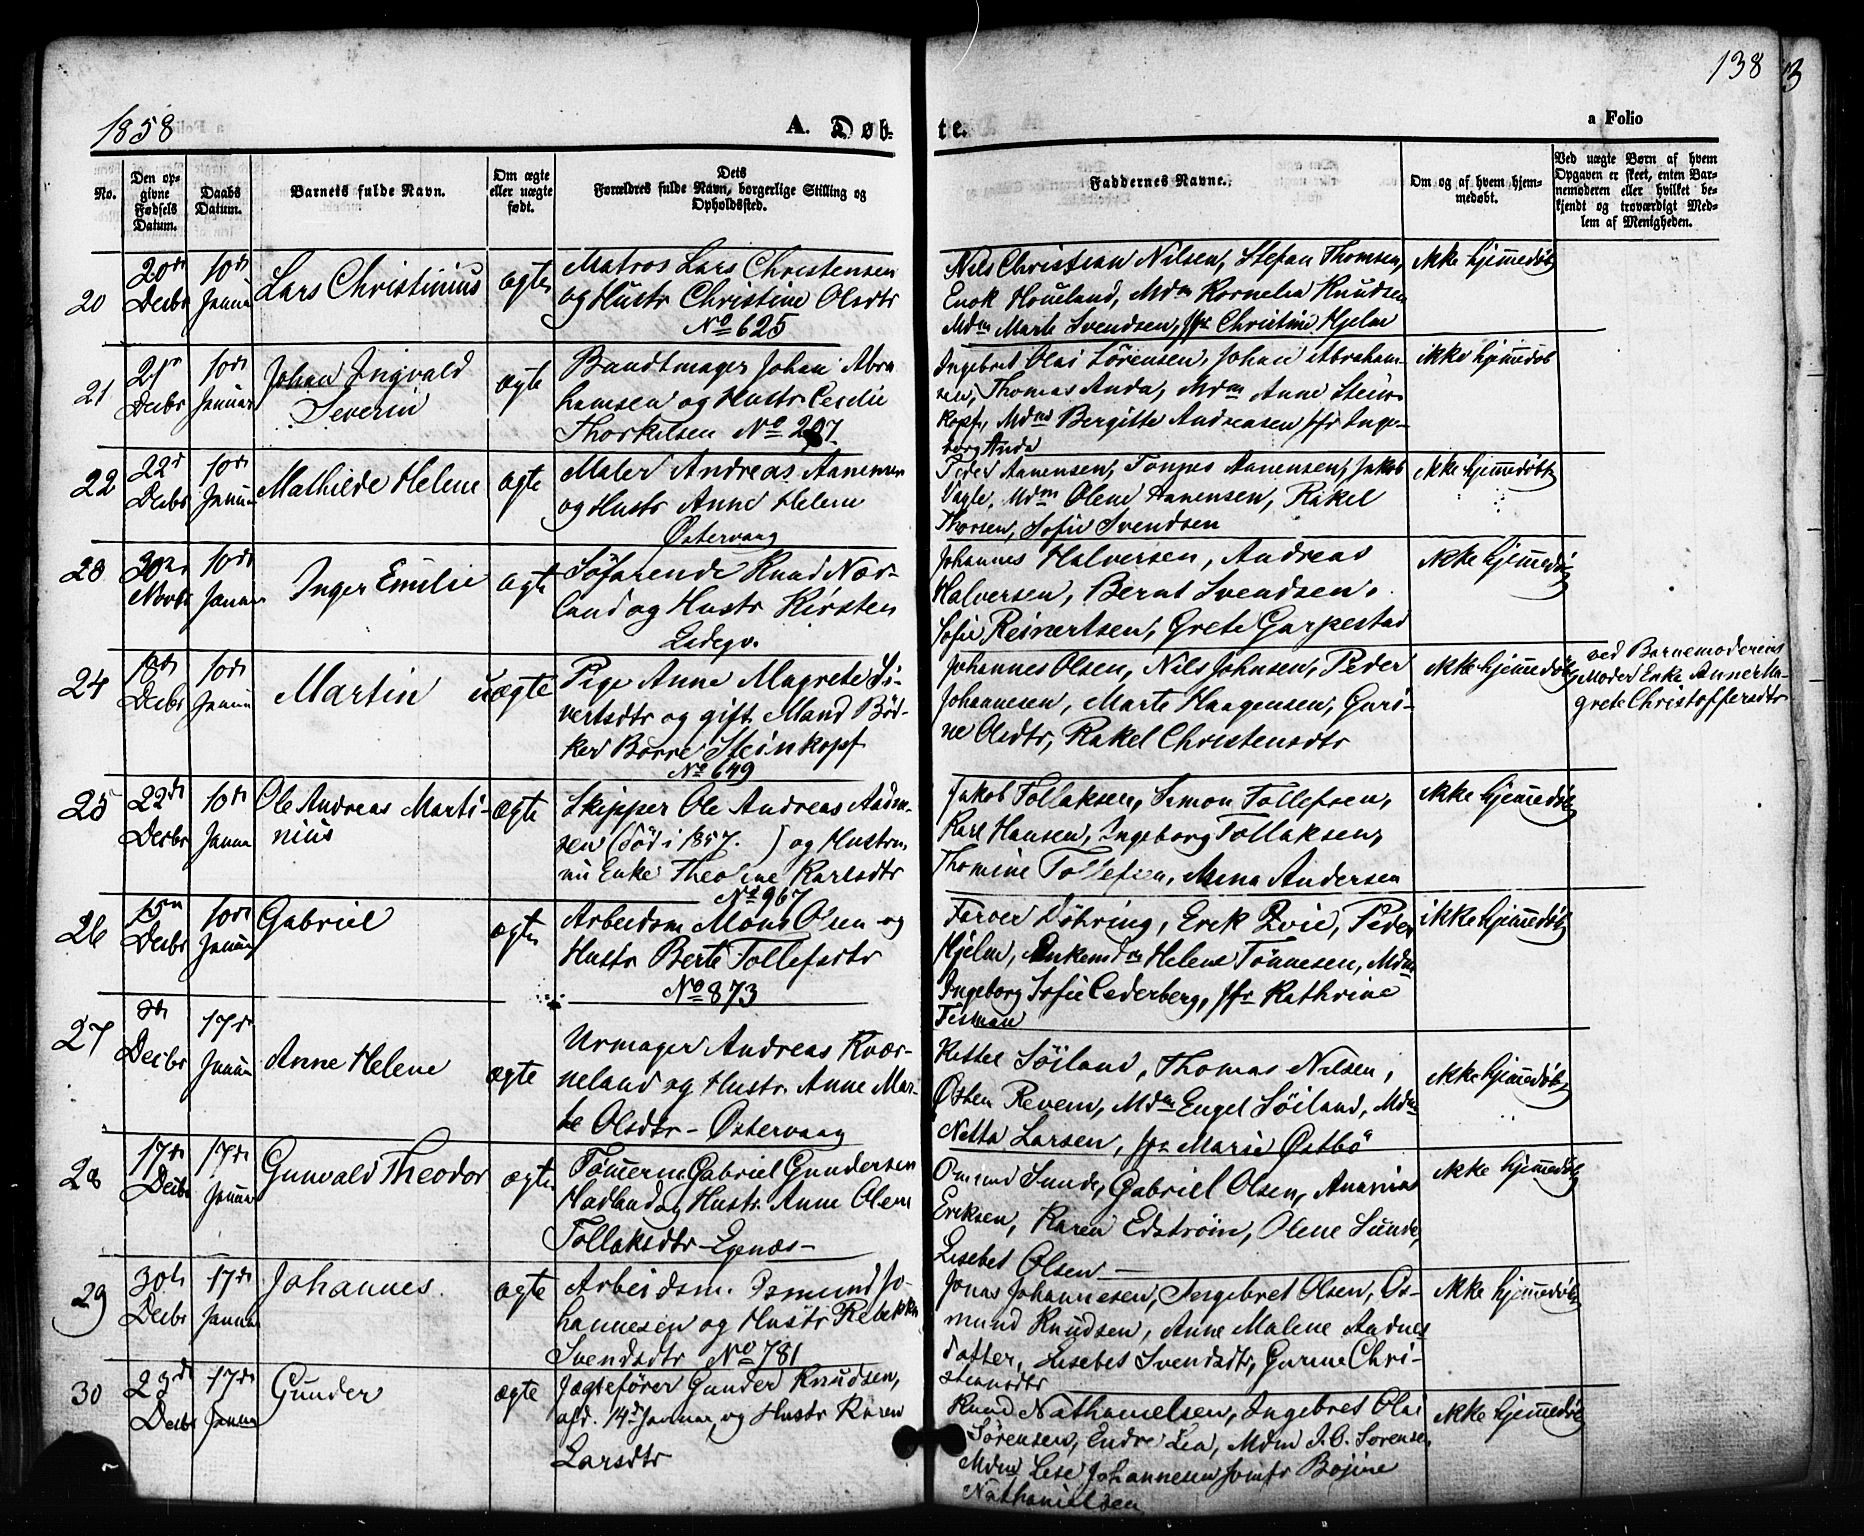 138
3
1858
A. Døb-
te.
a Folio
No.
Den op-
givne
Fødsels
Datum.
Daabs
Datum.
Barnets fulde Navn.
Om ægte
eller uægte
født.
Dets
Forældres fulde Navn, borgerlige Stilling og
Opholdssted.
Faddernes Navne.
Om og af hvem hjem-
medøbt.
Ved uægte Børn af hvem
Opgaven er skeet, enten Bar-
nemoderen eller hvilket be-
kjendt og troværdigt Med-
lem af Menigheden.
20
20de
Decbr
10de
Januar
Lars Christinius
ægte
Matros Lars Christensen
og Hustr Christine Olsdtr
No 625
Nils Christian Nilsen, Stefan Thomsen,
Enok Houeland, Mdm Kornelia Knudsen
Mdm Marte Svendsen, Jfr Christine Hjelm
ikke hjemmedøbt
21
Decbr
10de
Januar
Johan Ingvald
Severin
ægte
Bundtmager Johan Abra
hamsen og Hustr Cecilie
Thorkelsen No 207
Ingebret Olai Sørensen, Johan Abraham-
sen, Thomas Anda, Mdm Anne Stein-
kopf, Mdm Bergitte Andreasen Jfr Inge-
borg Anda
ikke hjemmedøb
22
22d
Decbr
10de
Januar
Mathilde Helene
ægte
Maler Andreas Aanensen
og Hustr Anne Helene
Østervaag
Peder Aanensen, Tønnes Aanensen, Jakob
Vagle, Mdm Olene Aanensen, Rakel
Thorsen, Sofie Svendsen
ikke hjemmedøbt
23
Novbr
10de
Januar
Inger Emilie
ægte
Søfarende Knud Nær-
land og Hustr Kirsten
Ladegr.
Johannes Halversen, Andreas
Halversen, Bernt Svendsen,
Sofie Reinertsen, Grete Garpestad
ikke hjemmedøbt
24
18de
Decbr
10de
Januar
Martin
uægte
Pige Anne Magrete Si-
vertsdtr og gift Mand Bød-
ker Børre Steinkopf
No 649
Johannes Olsen, Nils Johnsen, Peder
Johannesen, Marte Haagensen, Guri-
ne Olsdtr, Rakel Christensdtr
ikke hjemmedøbt
ved Barnemoderens
Moder Enke Anne Ma-
grete Christoffersdtr
25
22de
Decbr
10de
Januar
Ole Andreas Marti-
nius
ægte
Skipper Ole Andreas Andrea-
sen (død i 1857. ) og Hustru
nu Enke Theoline Karlsdtr
No 967
Jakob Tollaksen, Simon Tollefsen,
Karl Hansen, Ingeborg Tollaksen,
Thomine Tollefsen, Mina Andersen
ikke hjemmedøbt
26
15de
Decbr
10de
Januar
Gabriel
ægte
Arbeidsm Mons Olsen og
Hustr Berte Tollefsdtr
No 873
Farver Døhring, Erik Evie, Peder
Hjelm, Enkemdm Helene Tønnesen, Mdm
Ingeborg Sofie Cederberg, Jfr Kathrine
Tesman
ikke hjemmedøbt
27
Decbr
17de
Januar
Anne Helene
ægte
Urmager Andreas Kvær-
neland og Hustr. Anne Mar-
te Olsdtr - Østervaag
Kittel Søiland, Thomas Nilsen,
Østen Revem, Mdm Engel Søiland, Mdm
Netta Larsen, Jfr Marie Østbø
ikke hjemmedøbt
28
17de
Decbr
17de
Januar
Gunvald Theodor
ægte
Tømmerm. Gabriel Gundersen
Madland og Hustr. Anne Olene
Tollaksdtr - Egenæs -
Omund Sunde, Gabriel Olsen, Ananias
Eriksen, Karen Edstrøm, Olene Sunde,
Lisebet Olsen -
ikke hjemmedøbt
29
30te
Decbr
17de
Januar
Johannes.
ægte
Arbeidsm. Osmund Jo-
hannesen og Hustr Rebekka
Svendsdtr No 781
Jonas Johannesen, Ingebret Olsen, Os-
mund Knudsen, Anne Malene Aadnes
datter, Lisebet Svendsdtr, Gurine Chri-
stensdtr
ikke hjemmedøbt
30
23de
Decbr
17de
Januar
Gunder
ægte
Jægtefører Gunder Knudsen,
afd. 14d Januar, og Hustr Karen
Larsdtr
Knud Nathanielsen, Ingebret Olai
Sørensen, Endre Lea, Mdm J. O. Sørensen
Mdm Lise Johannesen Jomfr Bojine
Nathanielsen
ikke hjemmedøbt